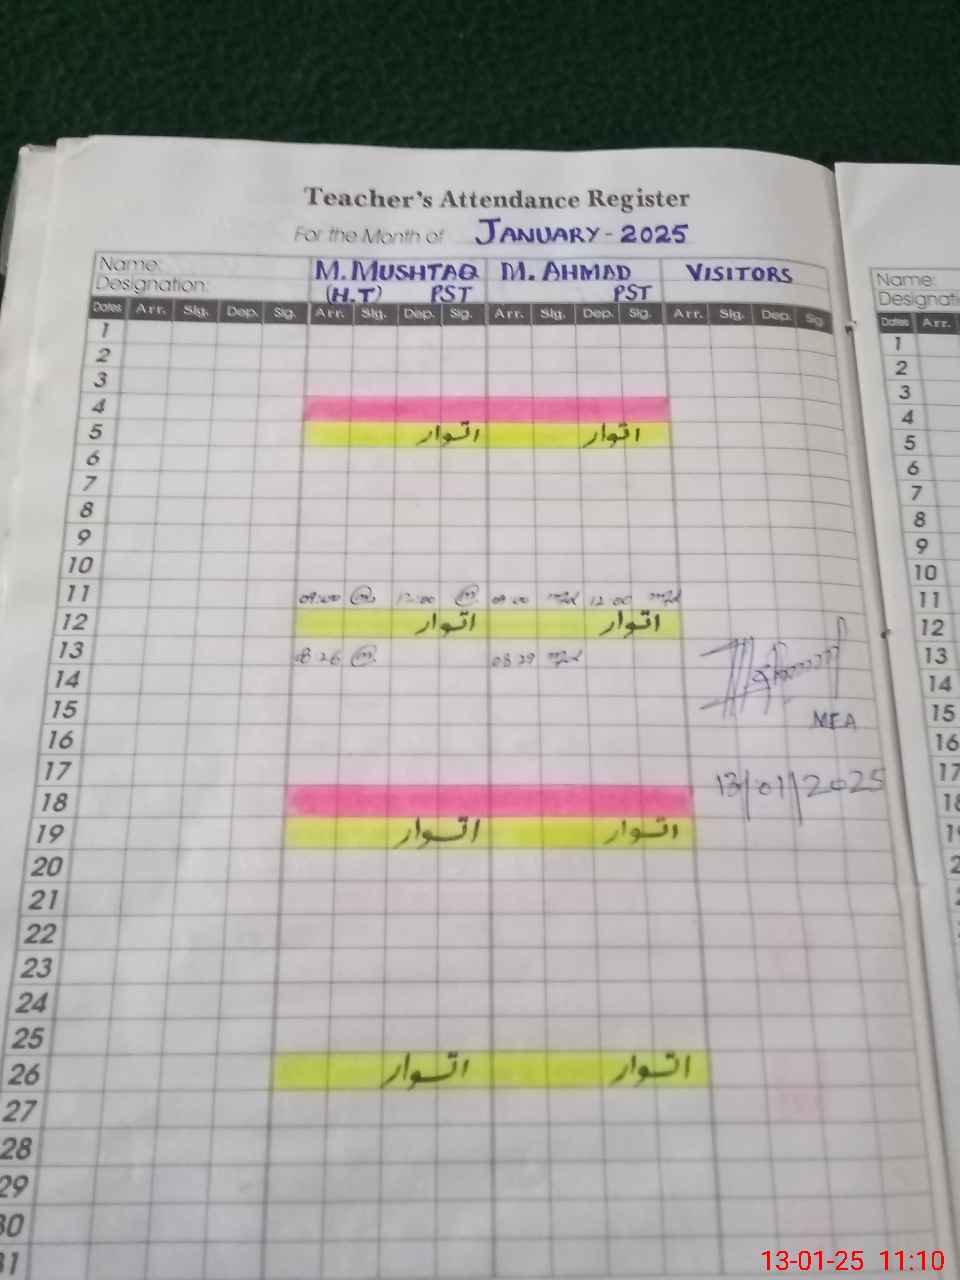 Teacher's Attendance Register
For the Month of JANUARY - 2025
Name: M. MUSHTAQ M. AHMAD VISITORS Name:
Designation: (H.T) PST PST
Dates Arr. Sig. Dep. Sig. Arr. Sig. Dep. Sig. Arr. Sig. Dep. Sig. Arr. Sig. Dep. Sig Dates Arr.
1 1
2 2
3 3
4 4
5 اتوار اتوار 5
6 6
7 7
8 8
9 9
10 10
11 09:00 12:00 09:00 12:00 11
12 اتوار اتوار 12
13 08:26 08:29 13
14 14
15 MEA 15
16 16
17 17
18 13/01/2025 18
19 اتوار اتوار
20
21
22
23
24
25
26 اتوار اتوار
27
28
29
30
31
13-01-25 11:10